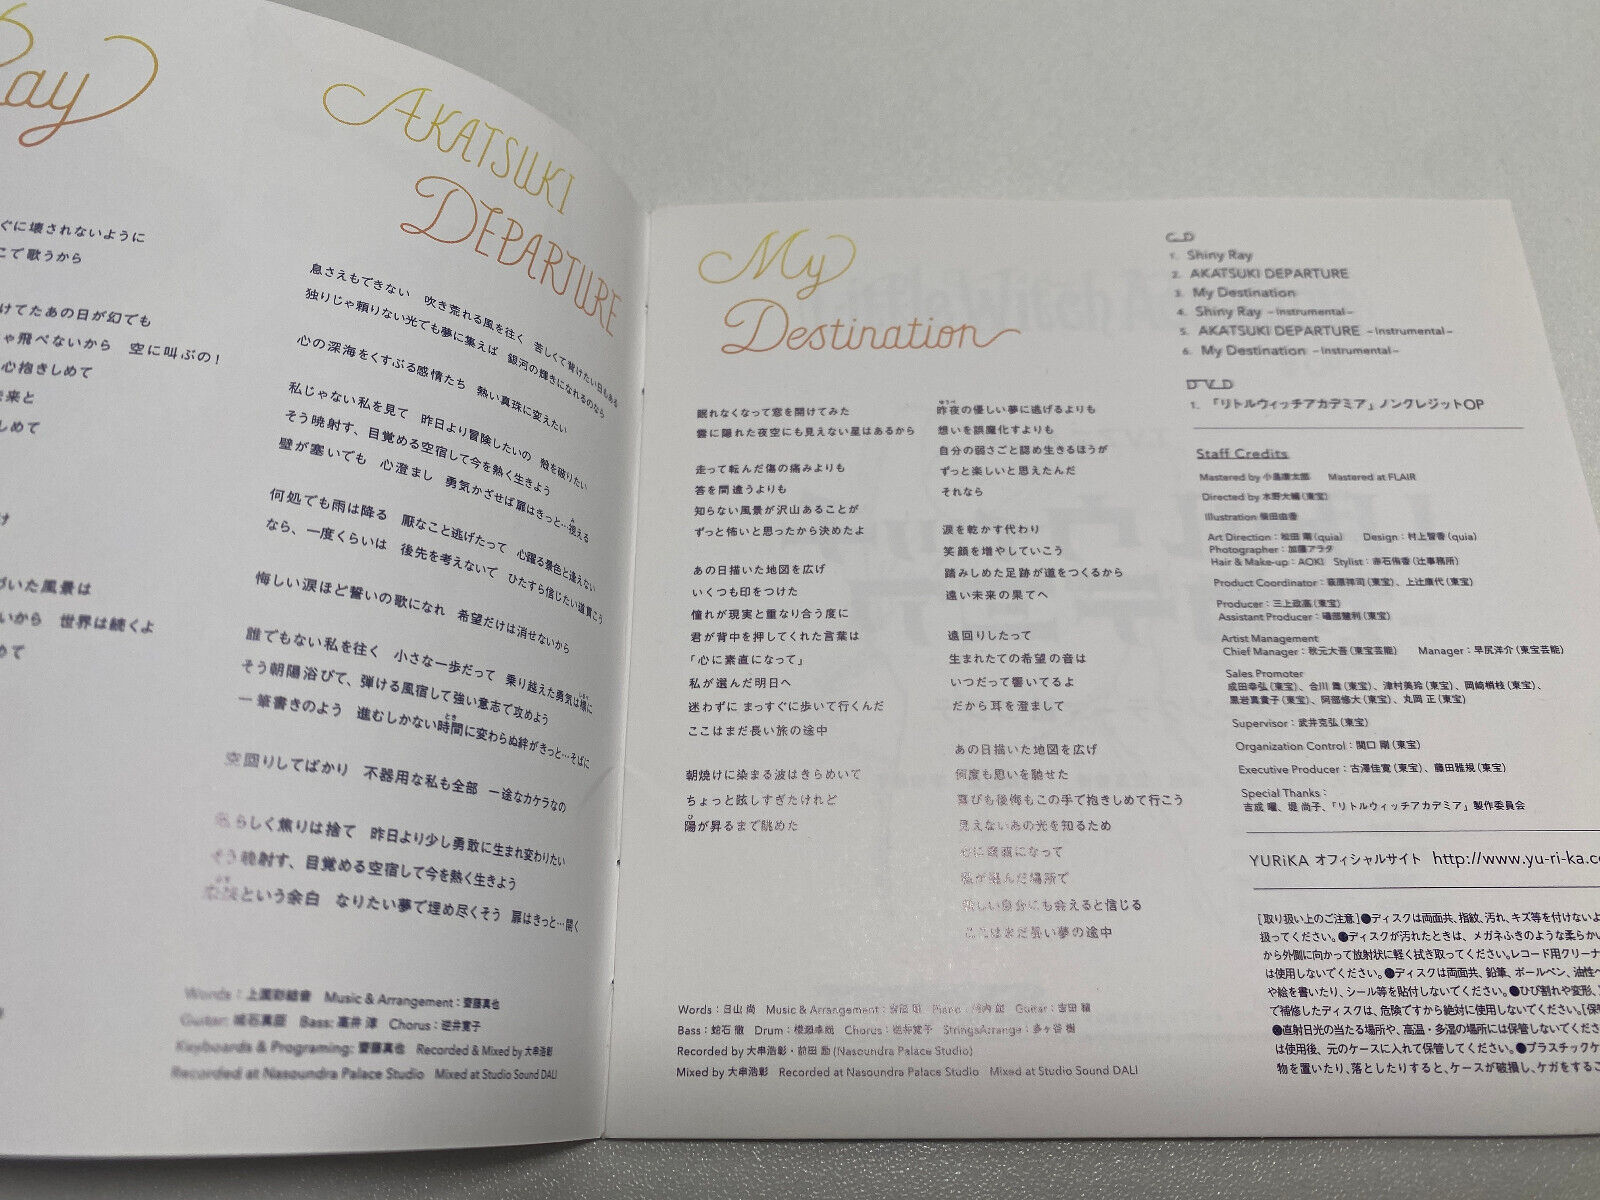 Ray
ぐに壊されないように
こで歌うから
けてたあの日が幻でも
ゃ飛べないから 空に叫ぶの!
心抱きしめて
未来と
しめて
け
づいた風景は
いから 世界は続くよ
めて
AKATSUKI
DEPARTURE
息さえもできない 吹き荒れる風を往く 苦しくて背けたい日もある
独りじゃ頼りない光でも夢に集えば 銀河の輝きになれるのなら
心の深海をくすぶる感情たち 熱い真珠に変えたい
私じゃない私を見て 昨日より冒険したいの 殻を破りたい
そう暁射す、目覚める空宿して今を熱く生きよう
壁が塞いでも 心澄まし 勇気かざせば扉はきっと…視える
何処でも雨は降る 厭なこと逃げたって 心躍る景色と逢えない
なら、一度くらいは 後先を考えないで ひたすら信じたい道貫こう
悔しい涙ほど誓いの歌になれ 希望だけは消せないから
誰でもない私を往く 小さな一歩だって 乗り越えた勇気は標に
そう朝陽浴びて、弾ける風宿して強い意志で攻めよう
一筆書きのよう 進むしかない時間に変わらぬ絆がきっと…そばに
空回りしてばかり 不器用な私も全部 一途なカケラなの
らしく焦りは捨て 昨日より少し勇敢に生まれ変わりたい
そう暁射す、目覚める空宿して今を熱く生きよう
という余白 なりたい夢で埋め尽くそう 扉はきっと…開く
Words:上園彩結音 Music & Arrangement:齋藤真也
Guitar: 城石真臣 Bass: 髙井 淳 Chorus:逆井寛子
Keyboards & Programing: 齋藤真也 Recorded & Mixed by 大串浩彰
Recorded at Nasoundra Palace Studio Mixed at Studio Sound DALI
My
Destination
眠れなくなって窓を開けてみた
雲に隠れた夜空にも見えない星はあるから
走って転んだ傷の痛みよりも
答を間違うよりも
知らない風景が沢山あることが
ずっと怖いと思ったから決めたよ
あの日描いた地図を広げ
いくつも印をつけた
憧れが現実と重なり合う度に
君が背中を押してくれた言葉は
「心に素直になって」
私が選んだ明日へ
迷わずに まっすぐに歩いて行くんだ
ここはまだ長い旅の途中
朝焼けに染まる波はきらめいて
ちょっと眩しすぎたけれど
陽が昇るまで眺めた
昨夜の優しい夢に逃げるよりも
想いを誤魔化すよりも
自分の弱さごと認め生きるほうが
ずっと楽しいと思えたんだ
それなら
涙を乾かす代わり
笑顔を増やしていこう
踏みしめた足跡が道をつくるから
遠い未来の果てへ
遠回りしたって
生まれたての希望の音は
いつだって響いてるよ
だから耳を澄まして
あの日描いた地図を広げ
何度も思いを馳せた
喜びも後悔もこの手で抱きしめて行こう
見えないあの光を知るため
心に素直になって
私が選んだ場所で
新しい自分にも会えると信じる
ここはまだ長い夢の途中
Words:日山 尚 Music & Arrangement: Piano: Guitar:吉田 穣
Bass:蛇石 徹 Drum:横瀬卓哉 Chorus:逆井寛子 StringsArrange:多ヶ谷 樹
Recorded by 大串浩彰・前田 励 (Nasoundra Palace Studio)
Mixed by 大串浩彰 Recorded at Nasoundra Palace Studio Mixed at Studio Sound DALI
CD
1. Shiny Ray
2. AKATSUKI DEPARTURE
3. My Destination
4. Shiny Ray -Instrumental-
5. AKATSUKI DEPARTURE -Instrumental-
6. My Destination -Instrumental-
DVD
1. 「リトルウィッチアカデミア」ノンクレジットOP
Staff Credits
Mastered by 小島康太郎 Mastered at FLAIR
Directed by 水野大輔(東宝)
Illustration 柴田由香
Art Direction:松田 剛(quia) Design:村上智香(quia)
Photographer:加藤アラタ
Hair & Make-up:AOKI Stylist:赤石侑香(辻事務所)
Product Coordinator:荻原祥司(東宝)、上辻康代(東宝)
Producer:三上政高(東宝)
Assistant Producer:礒部健利(東宝)
Artist Management
Chief Manager:秋元大吾(東宝芸能) Manager:早尻洋介(東宝芸能)
Sales Promoter
成田幸弘(東宝)、合川 舞(東宝)、津村美玲(東宝)、岡崎梢枝(東宝)、
黒岩真貴子(東宝)、阿部修大(東宝)、丸岡 正(東宝)
Supervisor:武井克弘(東宝)
Organization Control:関口 剛(東宝)
Executive Producer:古澤佳寛(東宝)、藤田雅規(東宝)
Special Thanks:
吉成 曜、堤 尚子、「リトルウィッチアカデミア」製作委員会
YURiKA オフィシャルサイト http://www.yu-ri-ka.co
[取り扱い上のご注意]●ディスクは両面共、指紋、汚れ、キズ等を付けないよ
扱ってください。●ディスクが汚れたときは、メガネふきのような柔らかい
から外側に向かって放射状に軽く拭き取ってください。レコード用クリーナ
は使用しないでください。●ディスクは両面共、鉛筆、ボールペン、油性ペ
や絵を書いたり、シール等を貼付しないでください。●ひび割れや変形、
で補修したディスクは、危険ですから絶対に使用しないでください。[保
●直射日光の当たる場所や、高温・多湿の場所には保管しないでくださ
は使用後、元のケースに入れて保管してください。●プラスチックケ
物を置いたり、落としたりすると、ケースが破損し、ケガをするこ